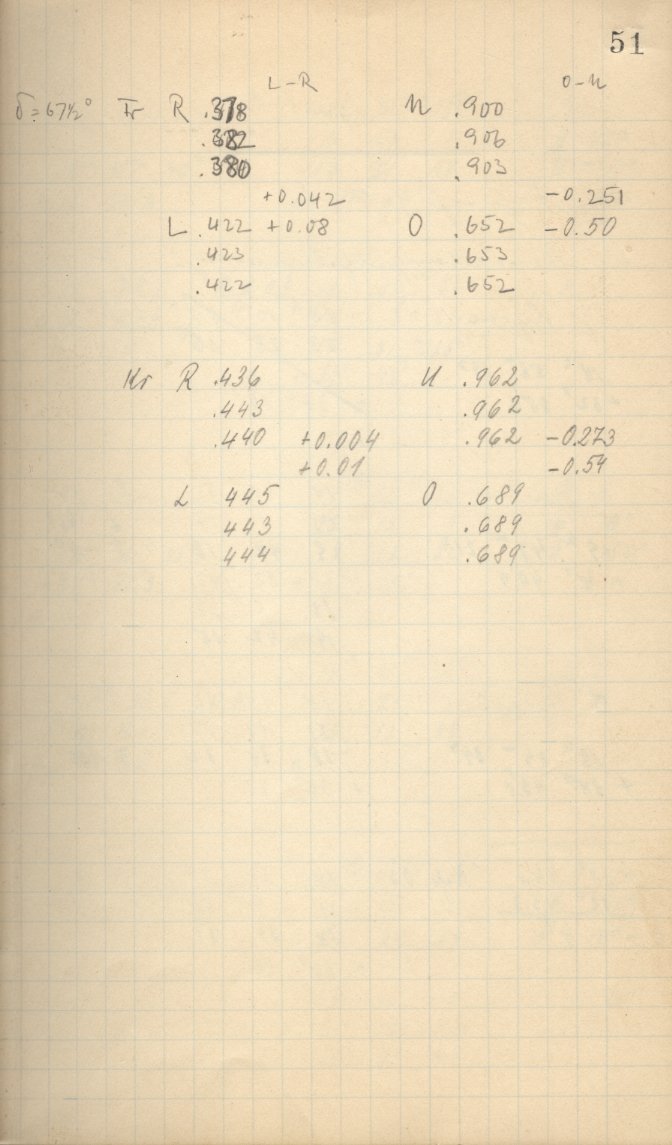 51
L-R O-U
δ=67½° Fr R .378 U .900
.382 .906
.380 .903
+0.042 -0.251
L .422 +0.08 O .652 -0.50
.423 .653
.422 .652
Kr R .436 U .962
.443 .962
.440 +0.004 .962 -0.273
+0.01 -0.54
L 445 O .689
443 .689
444 .689